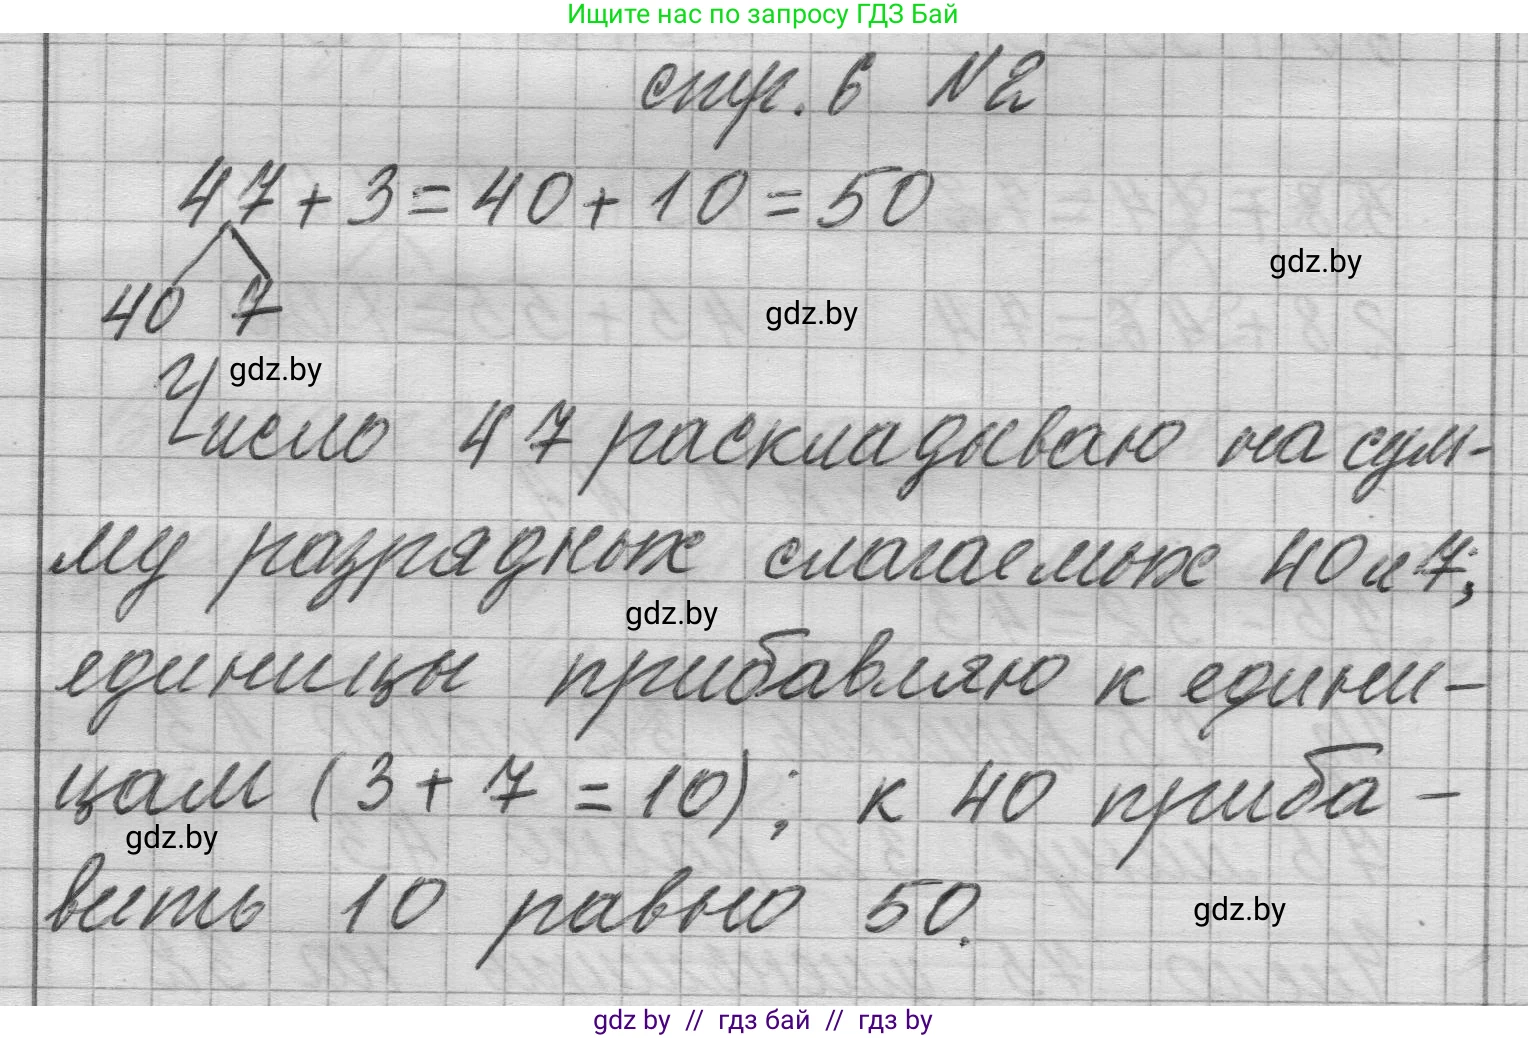 Ищите нас по запросу ГДЗ Бай
стр. 6 № 2
47 + 3 = 40 + 10 = 50
gdz.by
40 7
gdz.by
gdz.by
Число 47 раскладываю на сум-
му разрядных слагаемых 40 и 7;
gdz.by
единицы прибавляю к едини-
цам (3 + 7 = 10); к 40 приба-
gdz.by
вить 10 равно 50.
gdz.by
gdz by // гдз бай // гдз by